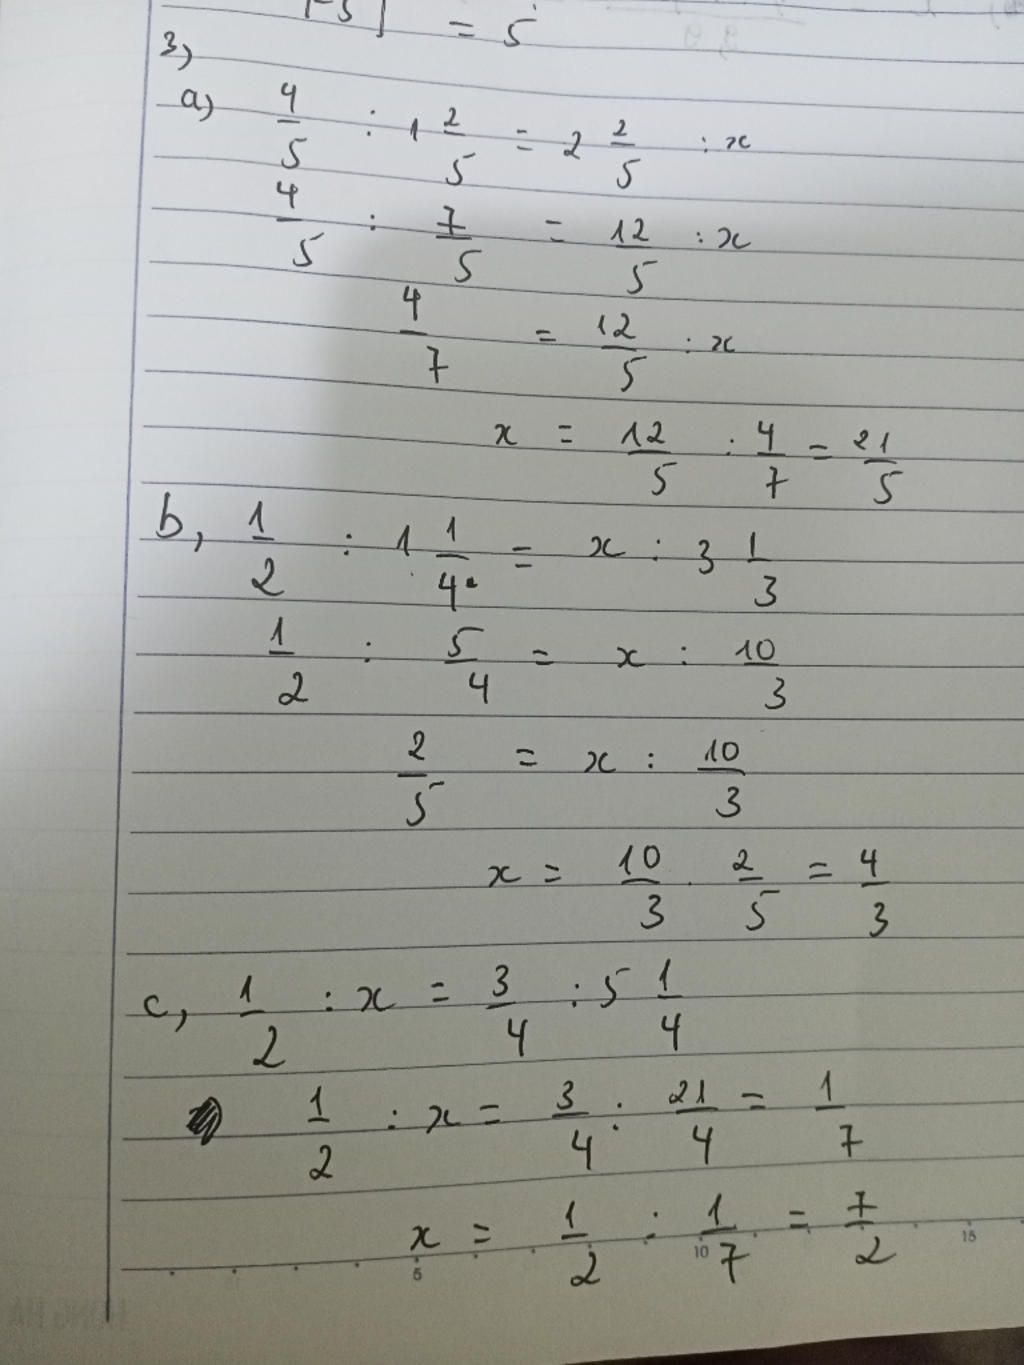 |-5| = 5
3)
a) 4/5 : 1 2/5 = 2 2/5 : x
4/5 : 7/5 = 12/5 : x
4/7 = 12/5 : x
x = 12/5 : 4/7 = 21/5
b, 1/2 : 1 1/4 = x : 3 1/3
1/2 : 5/4 = x : 10/3
2/5 = x : 10/3
x = 10/3 . 2/5 = 4/3
c, 1/2 : x = 3/4 : 5 1/4
1/2 : x = 3/4 : 21/4 = 1/7
x = 1/2 : 1/7 = 7/2
5 10 15